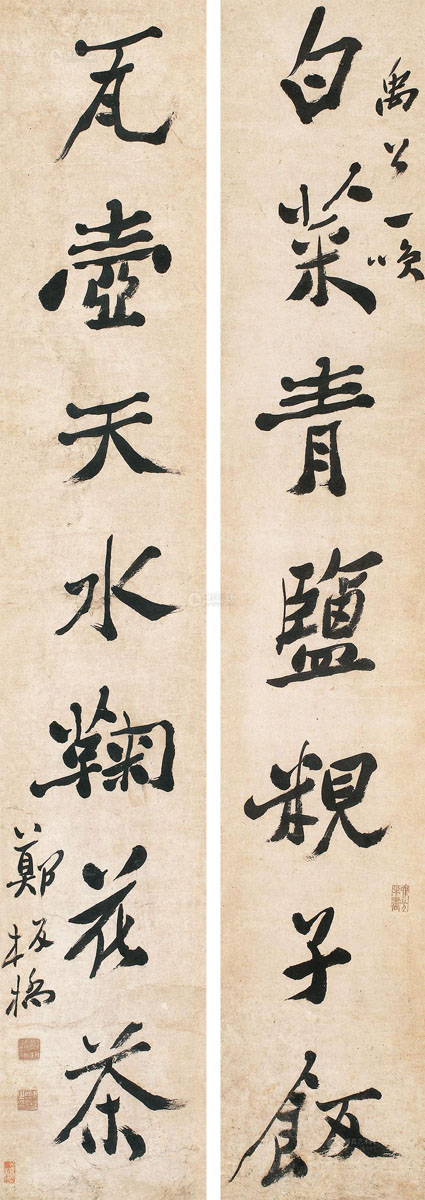 禹公一咲
白菜青鹽粯子飯
瓦壺天水鞠花茶
鄭板橋